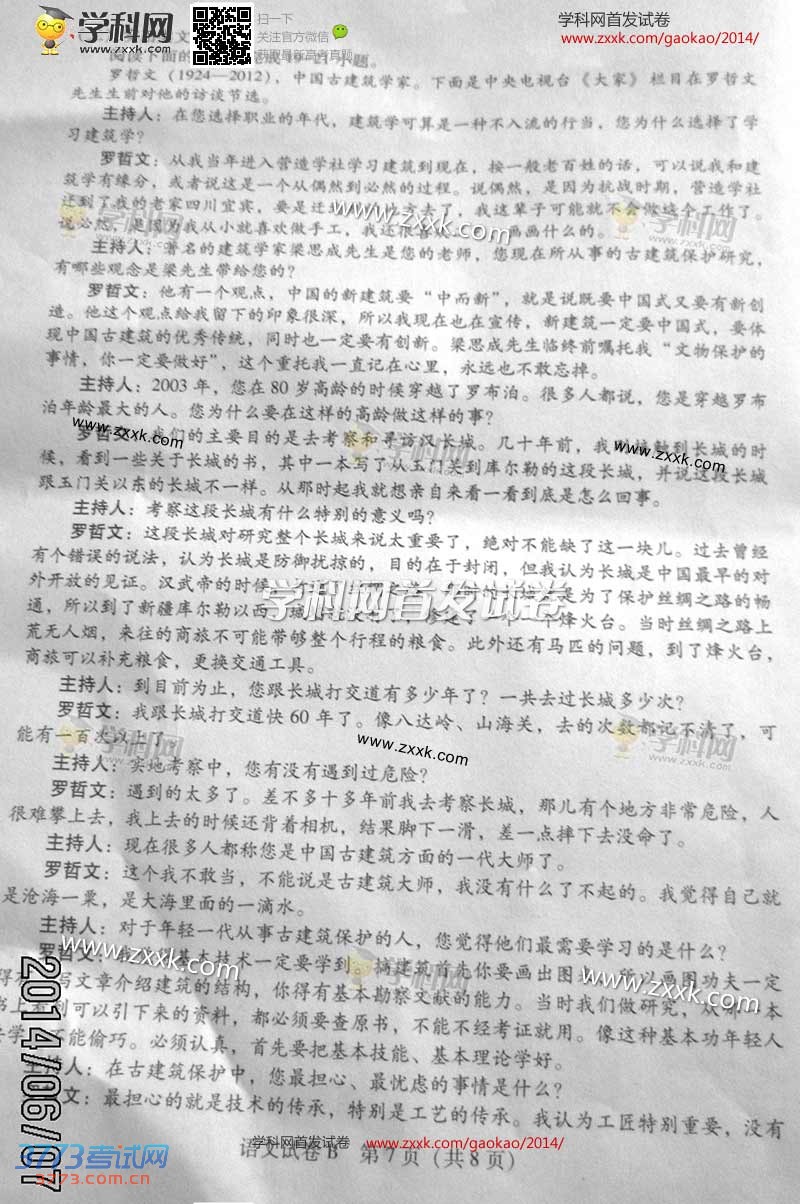 学科网
www.zxxk.com
扫一下
关注官方微信
获取最新高考真题
学科网首发试卷
www.zxxk.com/gaokao/2014/
阅读下面的 19 21小题。
罗哲文（1924—2012），中国古建筑学家。下面是中央电视台《大家》栏目在罗哲文
先生生前对他的访谈节选。
主持人：在您选择职业的年代，建筑学可算是一种不入流的行当，您为什么选择了学
习建筑学？
罗哲文：从我当年进入营造学社学习建筑到现在，按一般老百姓的话，可以说我和建
筑学有缘分，或者说这是一个从偶然到必然的过程。说偶然，是因为抗战时期，营造学社
迁到了我的老家四川宜宾，要是迁 方去了，我这辈子可能就不会做这个工作了。
说必然，是因为我从小就喜欢做手工，我还很喜 画画什么的。
主持人：著名的建筑学家梁思成先生是您的老师，您现在所从事的古建筑保护研究，
有哪些观念是梁先生带给您的？
罗哲文：他有一个观点，中国的新建筑要“中而新”，就是说既要中国式又要有新创
造。他这个观点给我留下的印象很深，所以我现在也在宣传，新建筑一定要中国式，要体
现中国古建筑的优秀传统，同时也一定要有创新。梁思成先生临终前嘱托我“文物保护的
事情，你一定要做好”，这个重托我一直记在心里，永远也不敢忘掉。
主持人：2003年，您在80岁高龄的时候穿越了罗布泊。很多人都说，您是穿越罗布
泊年龄最大的人。您为什么要在这样的高龄做这样的事？
罗哲文：我们的主要目的是去考察和寻访汉长城。几十年前，我 接触到长城的时
候，看到一些关于长城的书，其中一本写了从玉门关到库尔勒的这段长城，并说这段长城
跟玉门关以东的长城不一样。从那时起我就想亲自来看一看到底是怎么回事。
主持人：考察这段长城有什么特别的意义吗？
罗哲文：这段长城对研究整个长城来说太重要了，绝对不能缺了这一块儿。过去曾经
有个错误的说法，认为长城是防御扰掠的，目的在于封闭，但我认为长城是中国最早的对
外开放的见证。汉武帝的时候 是为了保护丝绸之路的畅
通，所以到了新疆库尔勒以西 个烽火台。当时丝绸之路上
荒无人烟，来往的商旅不可能带够整个行程的粮食。此外还有马匹的问题，到了烽火台，
商旅可以补充粮食，更换交通工具。
主持人：到目前为止，您跟长城打交道有多少年了？一共去过长城多少次？
罗哲文：我跟长城打交道快60年了。像八达岭、山海关，去的次数都记不清了，可
能有一百次以上了
主持人：实地考察中，您有没有遇到过危险？
罗哲文：遇到的太多了。差不多十多年前我去考察长城，那儿有个地方非常危险，人
很难攀上去，我上去的时候还背着相机，结果脚下一滑，差一点摔下去没命了。
主持人：现在很多人都称您是中国古建筑方面的一代大师了。
罗哲文：这个我不敢当，不能说是古建筑大师，我没有什么了不起的。我觉得自己就
是沧海一粟，是大海里面的一滴水。
主持人：对于年轻一代从事古建筑保护的人，您觉得他们最需要学习的是什么？
罗哲文 基本技术一定要学到。搞建筑首先你要画出图 所以画图功夫一定
得 写文章介绍建筑的结构，你得有基本勘察文献的能力。当时我们做研究，从 本
书上看到可以引下来的资料，都必须要查原书，不能不经考证就用。像这种基本功年轻人
去学 不能偷巧。必须认真，首先要把基本技能、基本理论学好。
主持人：在古建筑保护中，您最担心、最忧虑的事情是什么？
文：最担心的就是技术的传承，特别是工艺的传承。我认为工匠特别重要，没有
语文试卷B 第7页（共8页）
学科网首发试卷
www.zxxk.com/gaokao/2014/
2014/06/07
3773考试网
3773.com.cn